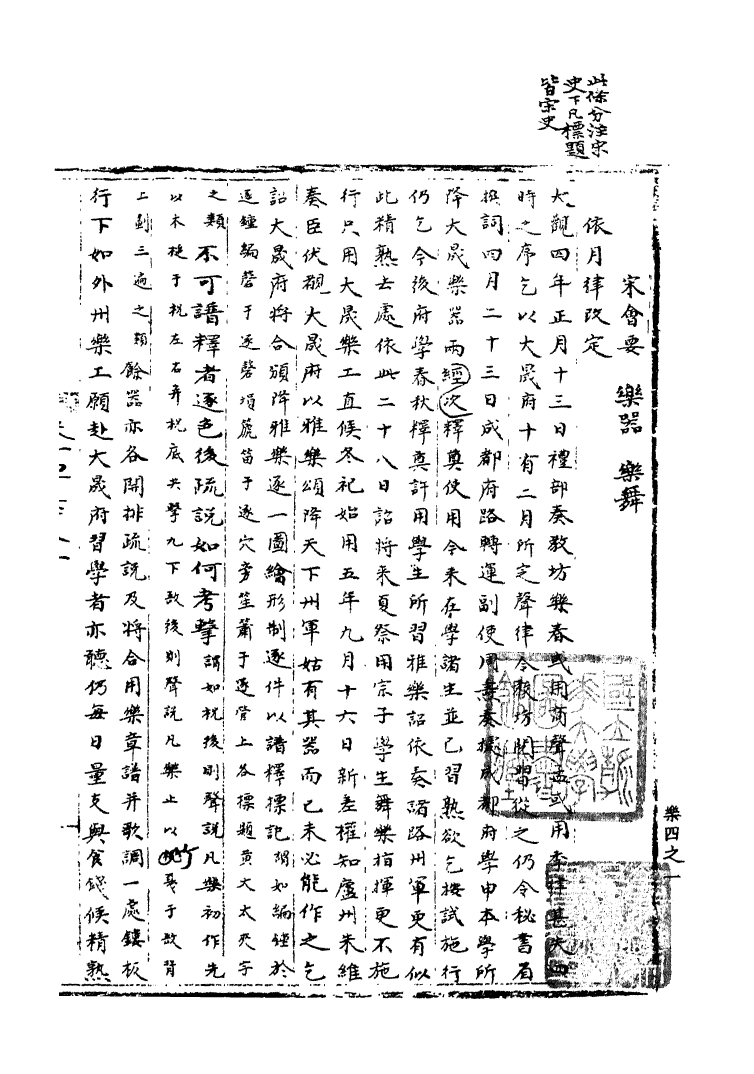 此條分注宋
史下凡標題
皆宗史
宋會要　樂器　樂舞
依月律改定
大觀四年正月十三日禮部奏教坊樂春或用商聲孟或用季律甚失四
時之序乞以大晟府十有二月所定聲律令教坊閱習從之仍令秘書省
撰詞四月二十三日成都府路轉運副使周燾奏據成都府學申本學所
降大晟樂器兩經次釋奠使用今來在學諸生並已習熟欲乞按試施行
仍乞今後府學春秋釋奠許用學生所習雅樂詔依奏諸路州軍更有似
此精熟去處依此二十八日詔將來夏祭用宗子學生舞樂指揮更不施
行只用大晟樂工直候冬祀始用五年九月十六日新差權知廬州朱維
奏臣伏覩大晟府以雅樂頒降天下州軍姑有其器而已未必能作之乞
詔大晟府將合頒降雅樂逐一圖繪形制逐件以譜釋標記謂如編鐘於
逐鐘編磬于逐磬塤篪笛于逐穴旁笙簫于逐管上各標題黃大太夾字
之類不可譜釋者逐色後疏說如何考擊謂如柷後則聲說凡樂初作先
以木椎于柷左右并柷底共擊九下敔後則聲說凡樂止以竹戛于敔背
上劃三遍之類餘器亦各開排疏說及將合用樂章譜并歌調一處鏤板
行下如外州樂工願赴大晟府習學者亦聽仍每日量支與食錢候精熟
樂四之一